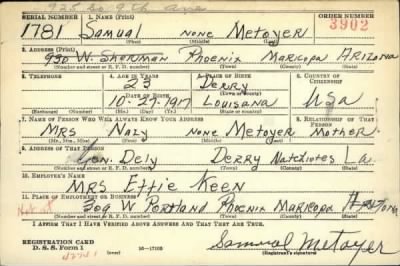 928 So 9th ave
SERIAL NUMBER 1. NAME (Print) ORDER NUMBER
1781 Samual none Metoyer 3902
(First) (Middle) (Last)
2. ADDRESS (Print)
930 W. Sherman Phoenix Maricopa Arizona
(Number and street or R. F. D. number) (Town) (County) (State)
3. TELEPHONE 4. AGE IN YEARS 5. PLACE OF BIRTH 6. COUNTRY OF CITIZENSHIP
23 Derry
DATE OF BIRTH (Town or county)
10-27-1917 Louisana USA
(Exchange) (Number) (Mo.) (Day) (Yr.) (State or country)
7. NAME OF PERSON WHO WILL ALWAYS KNOW YOUR ADDRESS 8. RELATIONSHIP OF THAT PERSON
Mrs Nozy none Metoyer Mother
(Mr., Mrs., Miss) (First) (Middle) (Last)
9. ADDRESS OF THAT PERSON
Gen. Dely Derry Natchiotes La.
(Number and street or R. F. D. number) (Town) (County) (State)
10. EMPLOYER'S NAME
Mrs Effie Keen
11. PLACE OF EMPLOYMENT OR BUSINESS
309 W Portland Phoenix Maricopa Arizona
(Number and street or R. F. D. number) (Town) (County) (State)
I AFFIRM THAT I HAVE VERIFIED ABOVE ANSWERS AND THAT THEY ARE TRUE.
REGISTRATION CARD
D. S. S. Form 1 (over) 16-17105 Samual Metoyer
(Registrant's signature)